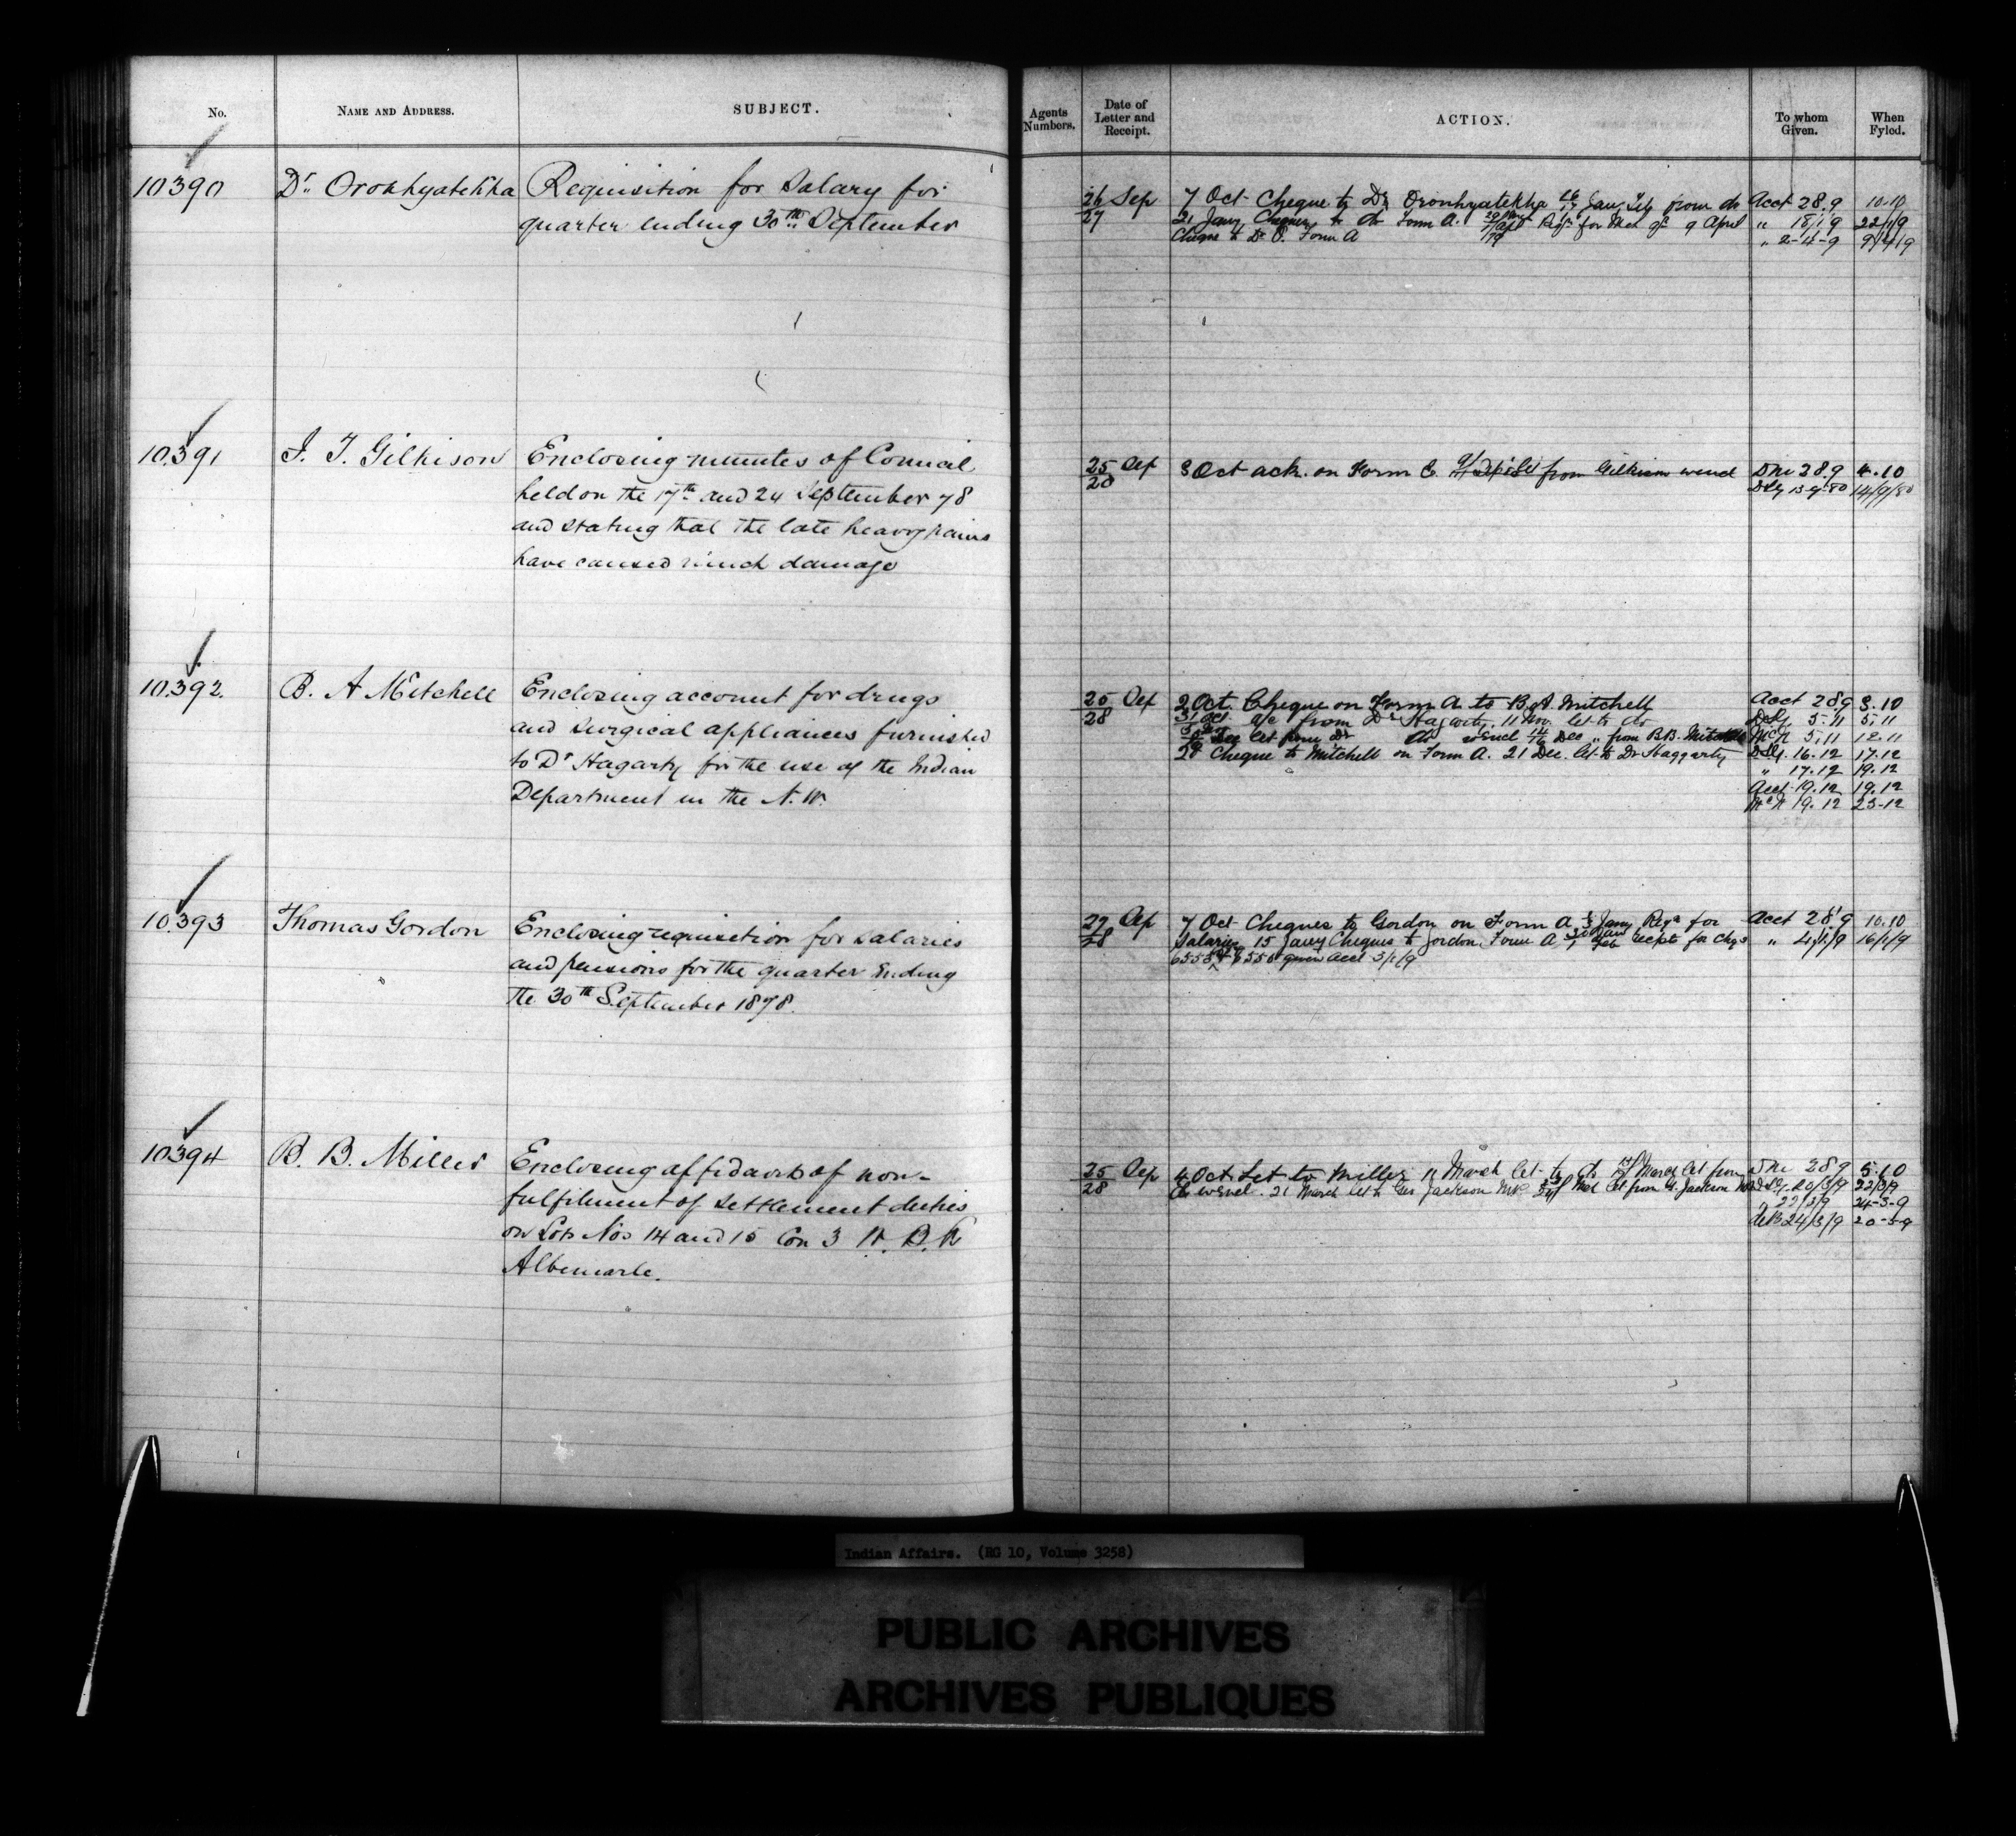 No.
NAME AND ADDRESS.
SUBJECT.
10390
Dr. Oronhyatekha
Requisition for Salary for
quarter ending 30th September
10.391
J. T. Gilkison
Enclosing minutes of Council
held on the 17th and 24 September 78
and stating that the late heavy rains
have caused much damage
10.392.
B. A Mitchell
Enclosing account for drugs
and surgical appliances furnished
to Dr Hagarty for the use of the Indian
Department in the N. W.
10.393
Thomas Gordon
Enclosing requisition for salaries
and pensions for the quarter Ending
the 30th September 1878.
10394
B. B. Miller
Enclosing affidavits of non-
fulfilment of settlement duties
on Lots Nos 14 and 15 Con 3 W. B. R
Albemarle.
Agents Numbers.
Date of Letter and Receipt.
ACTION.
To whom Given.
When Fyled.
26 Sep
27
7 Oct Cheque to Dr Oronhyatekha 16/17 Jany from do
Acct 28.9
10.10
21 Jany Cheque to do Form A. Reqn for 9 April
" 18/1/9
22/1/9
Cheque to Dr O. Form A
" 2-4-9
9/4/9
25 Sep
28
3 Oct ack. on Form C. from Gilkison
28.9
4.10
13-9-80
14/9/80
25 Sep
28
2 Oct Cheque on Form A to B. A. Mitchell
Acct 28.9
3.10
31 Oct a/c from Dr Hagarty. 11 Nov. let to do
5.11
5.11
Dec let from Dr do Dec " from B.B. Mitchell
McN 5.11
12.11
20 Cheque to Mitchell on Form A. 21 Dec. let to Dr Haggarty
16.12
17.12
" 17.12
19.12
Acct 19.12
19.12
McN 19.12
23-12
27 Sep
28
7 Oct Cheques to Gordon on Form A Jany Reqn for
Acct 28.9
10.10
Salaries 15 Jany Cheques to Gordon Form A Feb recpts for Chqs
" 4/1/9
16/1/9
given Acct 3/1/9
25 Sep
28
4 Oct Let to Miller 11 March let to do March let from
28.9
5.10
21 March let to Jackson let from G. Jackson
20/3/9
22/3/9
" 22/3/9
24-3-9
24/3/9
Indian Affairs. (RG 10, Volume 3258)
PUBLIC ARCHIVES
ARCHIVES PUBLIQUES